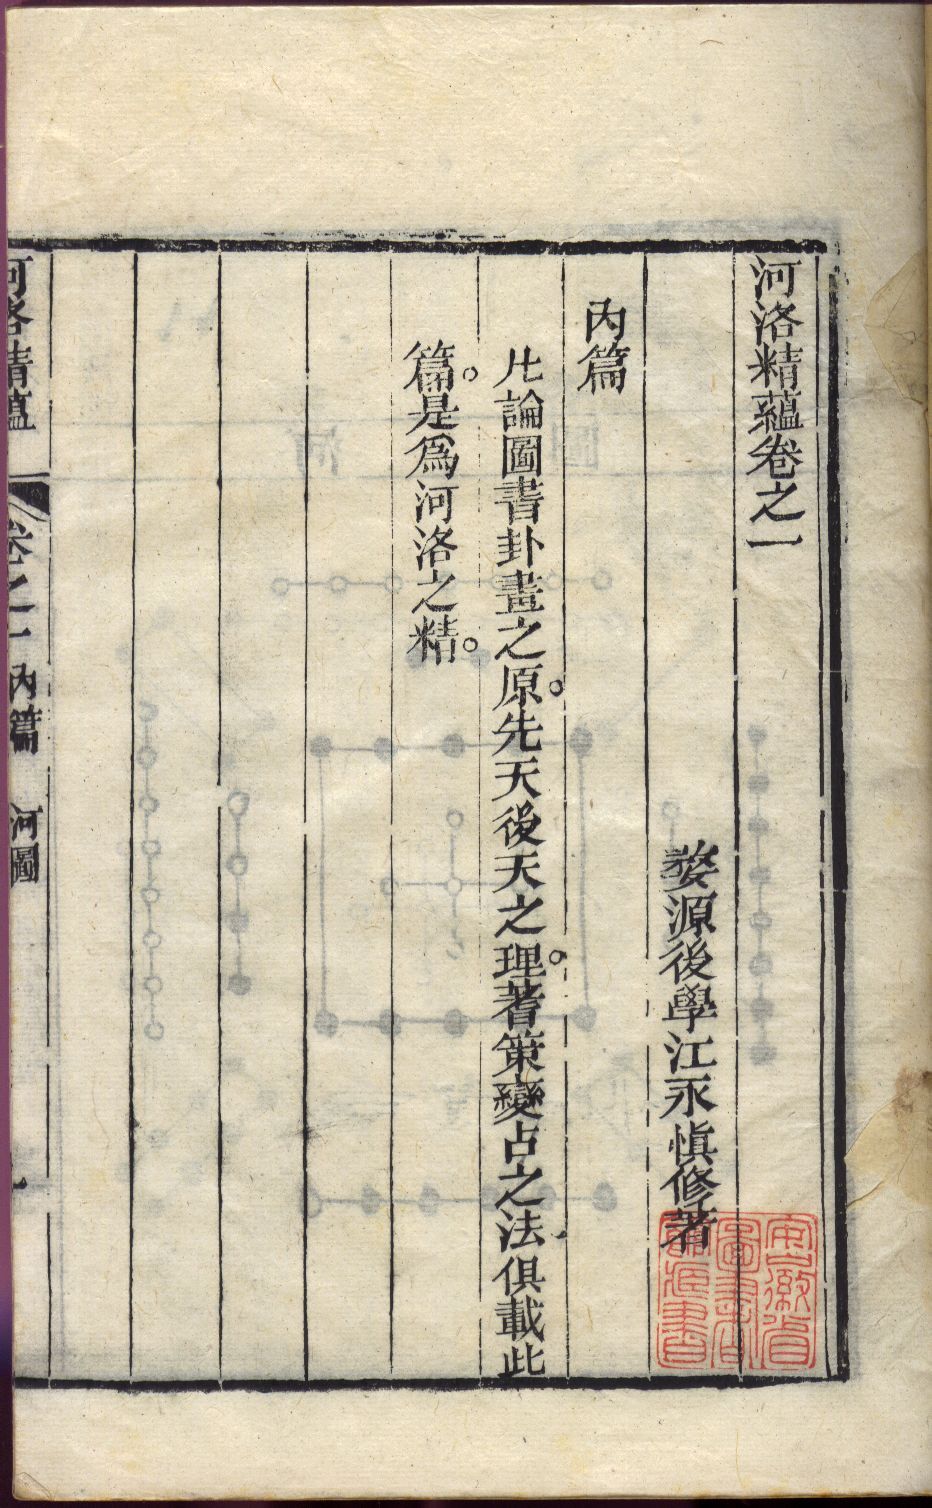 河洛精蘊卷之一
婺源後學江永慎修著
內篇
此論圖書卦畫之原。先天後天之理。蓍策變占之法俱載此
篇。是爲河洛之精。
安徽省
圖書館
藏書
河洛精蘊 卷之一 內篇 河圖 一